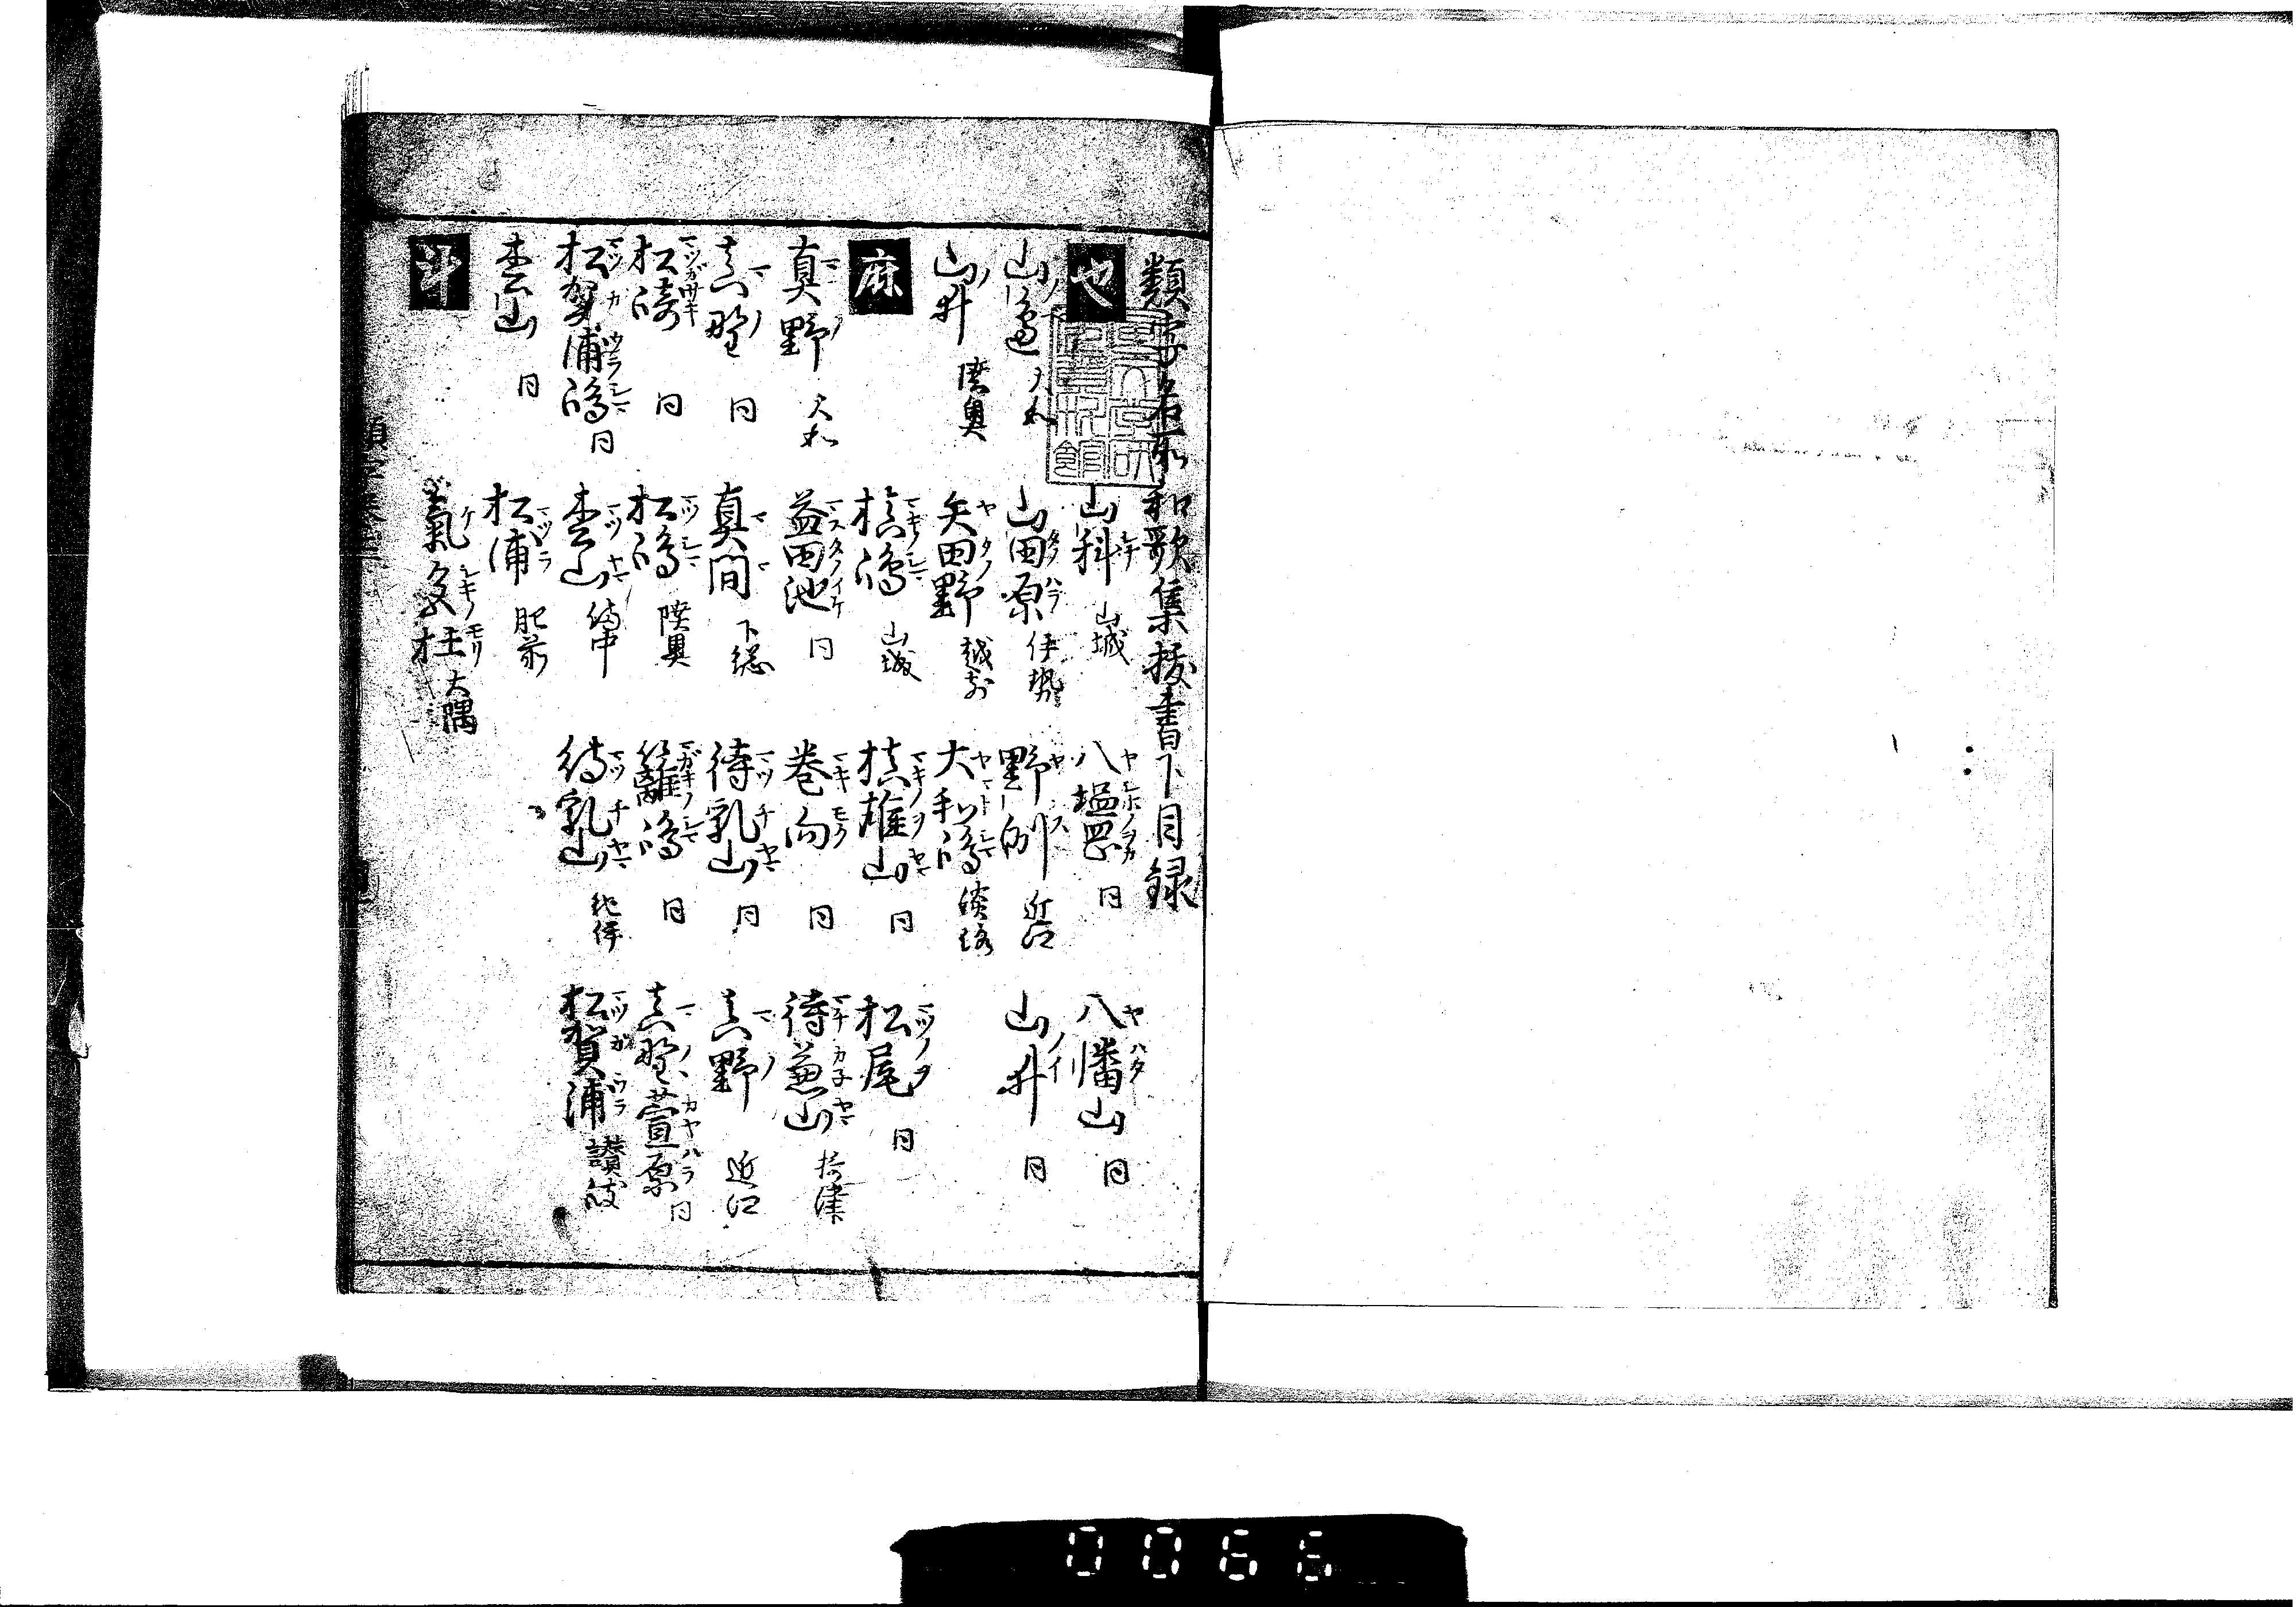 類字名所和歌集抜書下目録
也 山科 山城 八塩岡 同 八幡山 同
山邊 大和 山田原 伊勢 野洲 近江 山井 同
山井 陸奥 矢田野 越前 大和嶋 淡路
麻 槙嶋 山城 槙雄山 同 松尾 同
真野 大和 益田池 同 巻向 同 待兼山 摂津
真野 同 真間 下総 待乳山 同 真野 近江
松崎 同 松嶋 陸奥 籬嶋 同 真野萱原 同
松賀浦嶋 同 松山 備中 待乳山 紀伊 松賀浦 讃岐
松山 同 松浦 肥前
氣色杜 大隅
0066